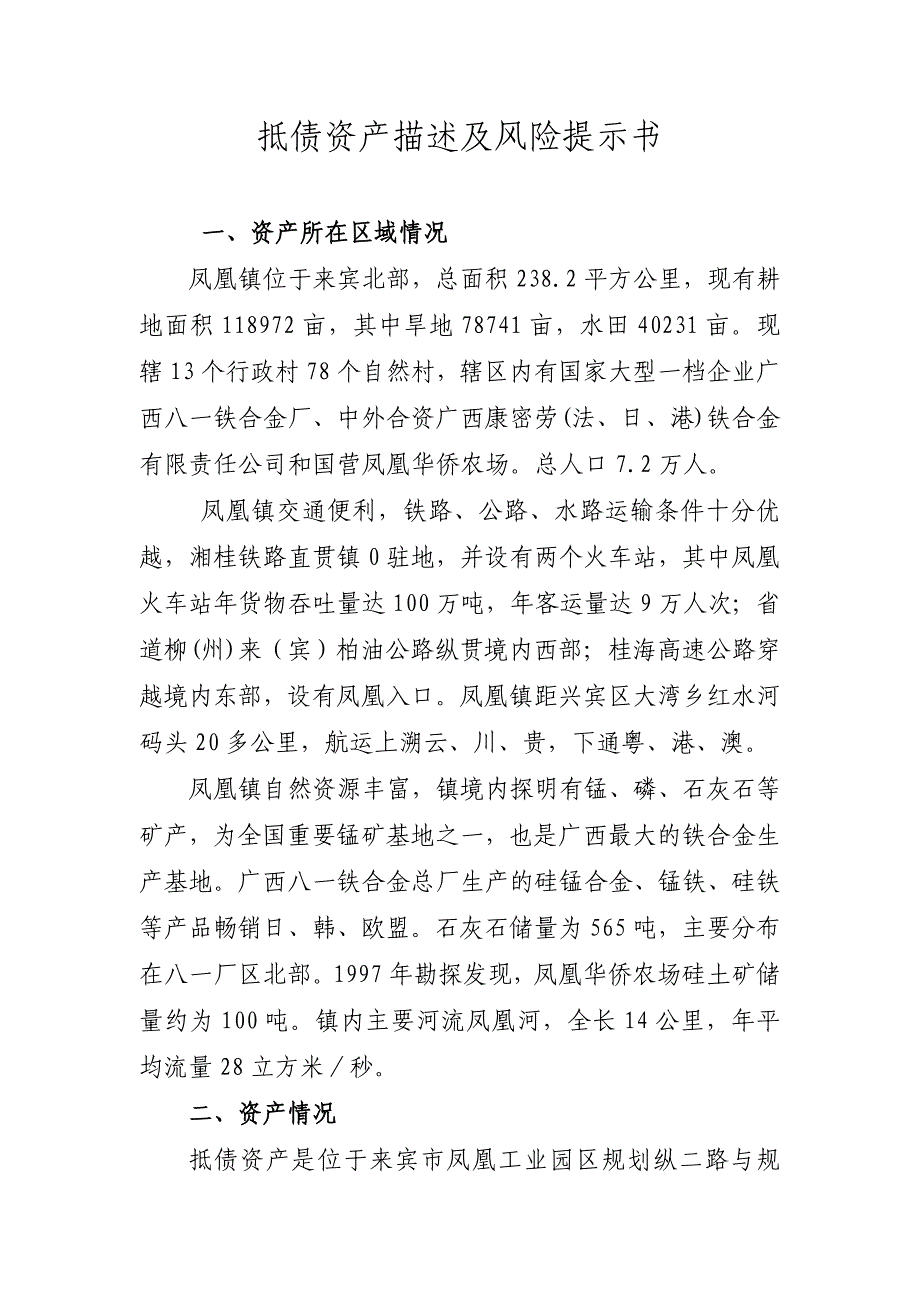 抵债资产描述及风险提示书
一、资产所在区域情况
凤凰镇位于来宾北部，总面积 238.2 平方公里，现有耕
地面积 118972 亩，其中旱地 78741 亩，水田 40231 亩。现
辖 13 个行政村 78 个自然村，辖区内有国家大型一档企业广
西八一铁合金厂、中外合资广西康密劳(法、日、港)铁合金
有限责任公司和国营凤凰华侨农场。总人口 7.2 万人。
凤凰镇交通便利，铁路、公路、水路运输条件十分优
越，湘桂铁路直贯镇 0 驻地，并设有两个火车站，其中凤凰
火车站年货物吞吐量达 100 万吨，年客运量达 9 万人次；省
道柳(州)来（宾）柏油公路纵贯境内西部；桂海高速公路穿
越境内东部，设有凤凰入口。凤凰镇距兴宾区大湾乡红水河
码头 20 多公里，航运上溯云、川、贵，下通粤、港、澳。
凤凰镇自然资源丰富，镇境内探明有锰、磷、石灰石等
矿产，为全国重要锰矿基地之一，也是广西最大的铁合金生
产基地。广西八一铁合金总厂生产的硅锰合金、锰铁、硅铁
等产品畅销日、韩、欧盟。石灰石储量为 565 吨，主要分布
在八一厂区北部。1997 年勘探发现，凤凰华侨农场硅土矿储
量约为 100 吨。镇内主要河流凤凰河，全长 14 公里，年平
均流量 28 立方米／秒。
二、资产情况
抵债资产是位于来宾市凤凰工业园区规划纵二路与规